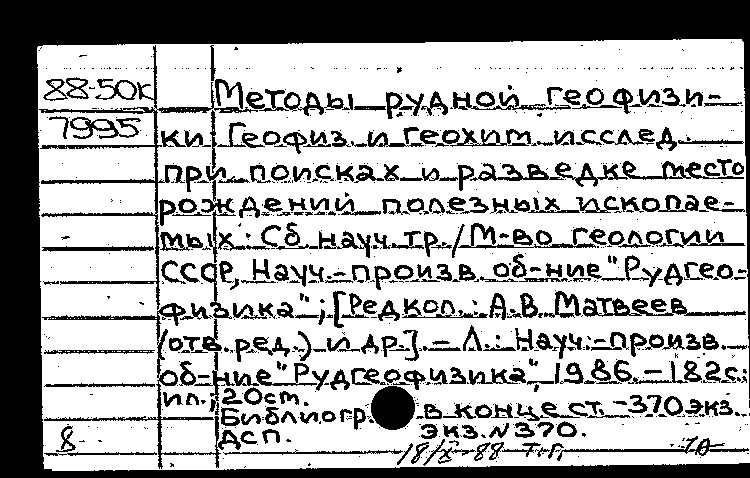 88-50К Методы рудной геофизи-
7995 ки Геофиз. и геохим. исслед.
при поисках и разведке место
рождений полезных ископае-
мых: Сб науч. тр./М-во геологии
СССР, Науч.-произв. об-ние "Рудгео-
физика"; [Редкол.: А.В. Матвеев
(отв. ред.) и др.]. - Л.: Науч.-произв.
об-ние "Рудгеофизика", 1986. - 182с.:
ил.; 20см.
Библиогр. в конце ст. - 370 экз.
8 ДСП. экз. №370.
18/X-88 т.г.